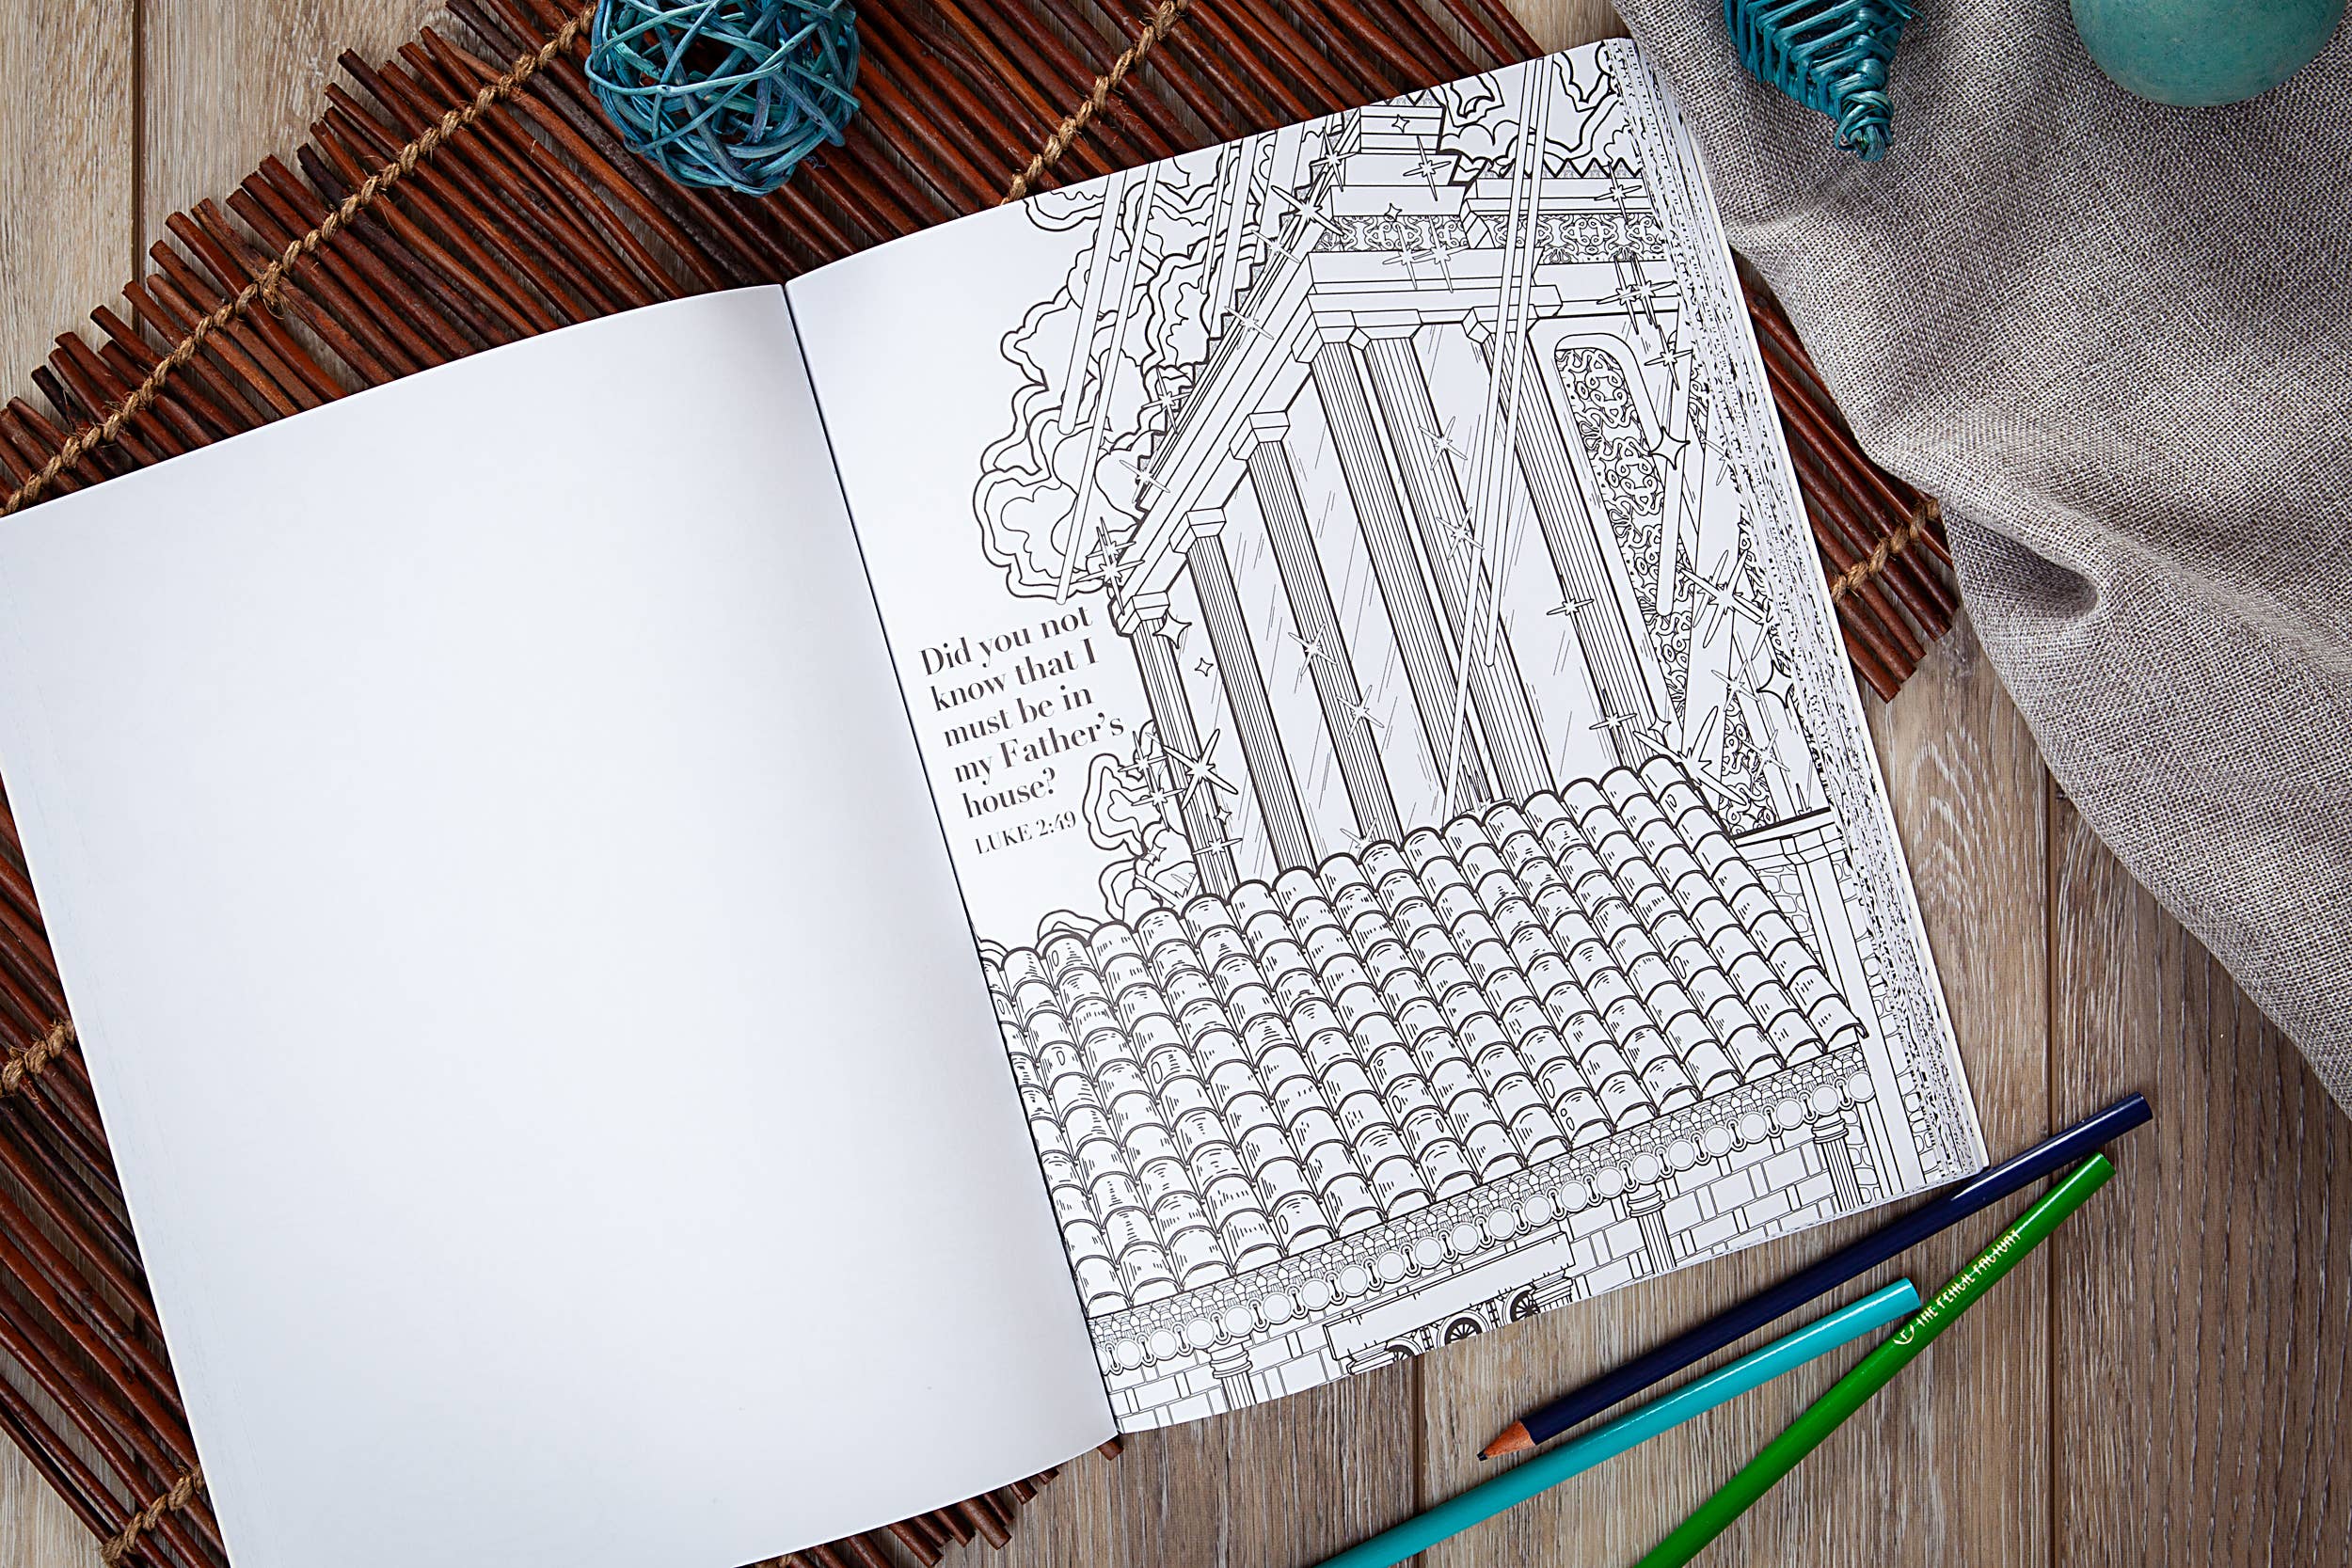 Did you not
know that I
must be in
my Father's
house?
LUKE 2:49
THE PENCIL FACTORY